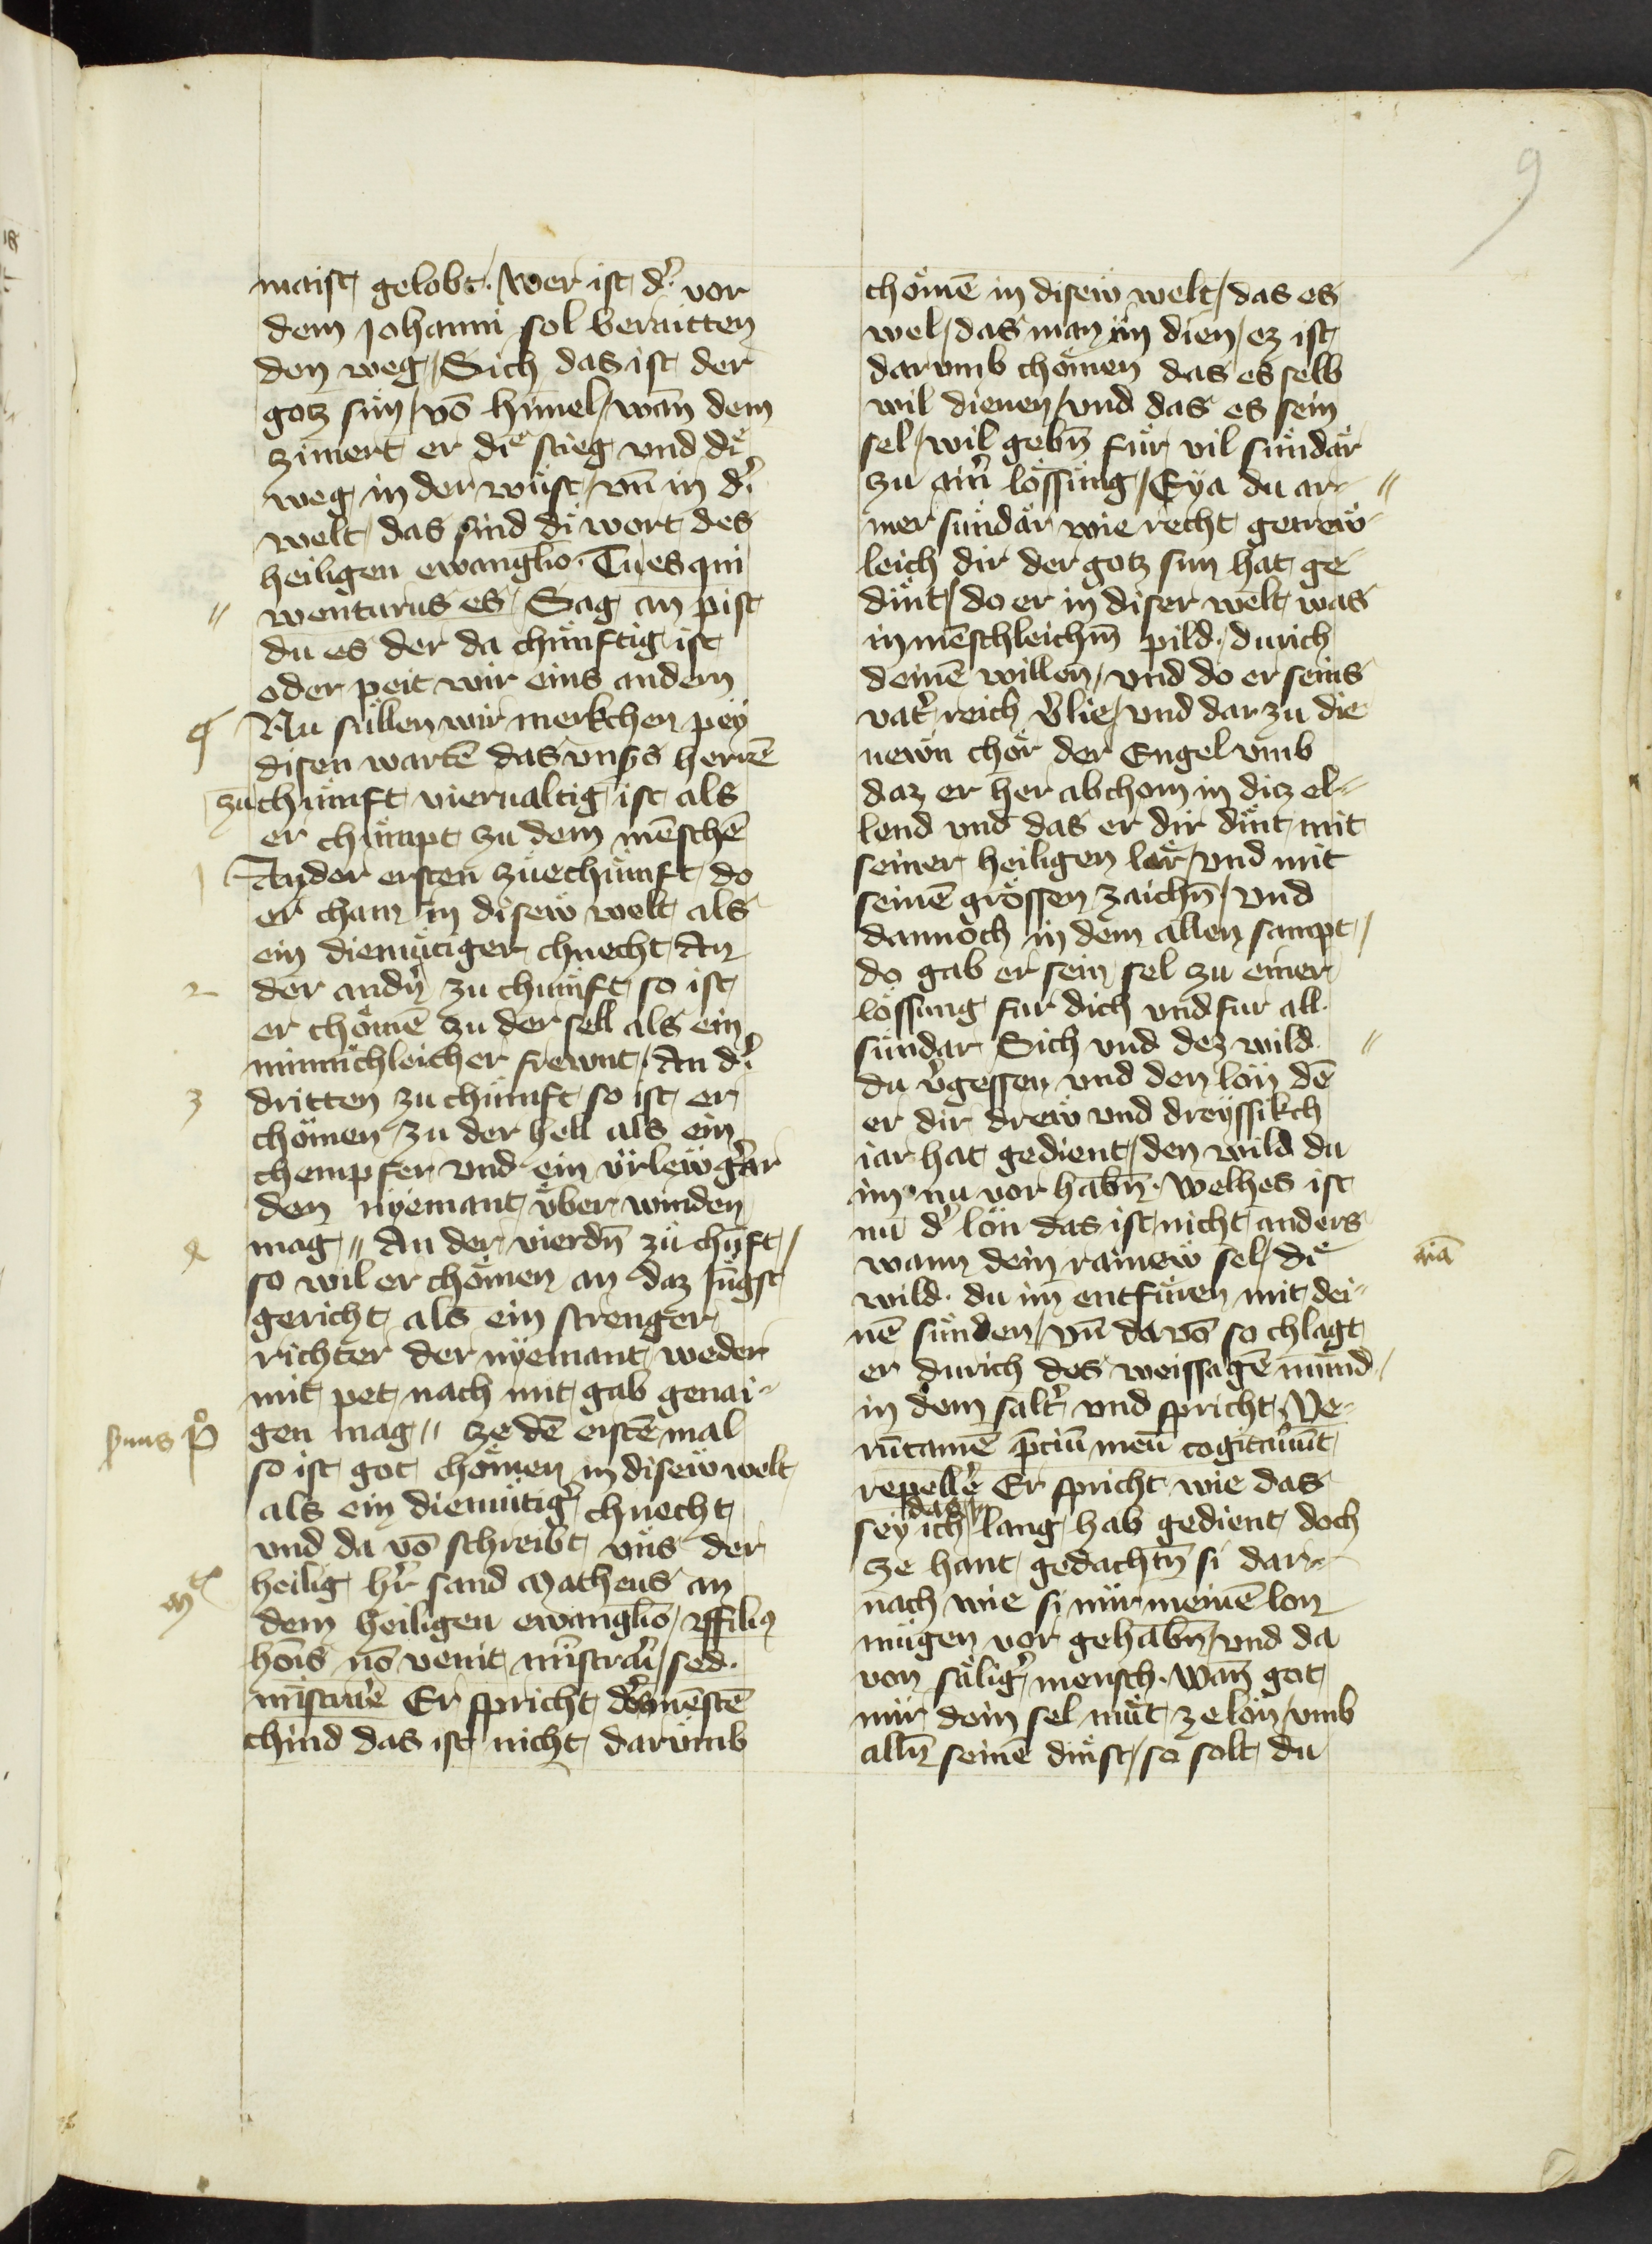 9
maist gelobt / wer ist d' vor
dem Johanni sol beraitten
den weg / Sich das ist der
gotz sun / vō himel / wan̄ dem
zimert er die stieg vnd di
weg in der wüst / vn̄ in d'
welt das sind di wort des
heiligen ewanglio · Tu es qui
wenturus es / Sag an pist
du es der da chünftig ist
oder peit wir eins andern
Nu süllen wir merkchen pey
disen wartē das vnßs herrē
zuchünft viervaltig ist als
er chümpt zu dem mēschē
1 An der ersten zuechünft do
er cham in disew welt als
ein diemütiger chnecht An
2 der andn̄ zu chünft so ist
er chömē zu der sell als ein
minnichleicher frewnt / An d'
3 dritten zu chünft so ist er
chömen zu der hell als ein
chempfer vnd ein vrlewg'ar
den nyemant vber winden
mag // An der vierdn̄ zu chūft /
so wil er chömen an daz Jüngst
gericht als ein strenger
richter der nyemant weder
mit pet nach mit gab genai-
gen mag // ze dē erstē mal
so ist got chömen in disew welt
als ein diemütig' chnecht
vnd da vō schreibt vns der
heilig h'r sand Matheus an
dem heiligen ewanglio / filiꝰ
hōis nō venit mīstrari / sed
mīstrare Er spricht des mēstē
chind das ist nicht darumb
chömē in disew welt / das es
wel / das man im dien / ez ist
darvmb chömen das es selb
wil dienen / vnd das es sein
sel / wil gebn̄ für vil sündär
zu ain' lössung / Eya du ar-
mer sündär wie recht getrew
leich dir der gotz sun hat ge
dint / do er in diser welt was
in mēschleichm̄ pild · durich
deinē willen / vnd do er seins
vat' reich v'lie / vnd dar zu die
newn chör der Engel vmb
daz er her abchom in ditz el-
lend vnd das er dir dint mit
seiner heiligen lär / vnd mit
seinē grössen zaichn̄ / vnd
dannoch in dem allen sampt /
do gab er sein sel zu einer
lössung fur dich vnd fur all
sündar Sich vnd dez wild
du v'gessen vnd den lön dē
er dir drew vnd dreyssikch
iar hat gedient / den wild du
im nu vor habn̄ · Welhes ist
nu d' lön das ist nicht anders
wann dein rainew sel / di
wild du im entfüren mit dei-
nē sünden / vn̄ da vō so chlagt
er durich des weissagē mund /
in dem salt' vnd spricht Ve-
rūtamē p̄ciū meū cogitau'ūt
repell'e Er spricht wie das
sey das ich lang hab gedient doch
ze hant gedachtn̄ si dar-
nach wie si mir meinē lon
mügen vor gehabn̄ / vnd da
von sälig' mensch · wan̄ got
mir dein sel müt ze lön / vmb
alln̄ seinē dinst / so solt du